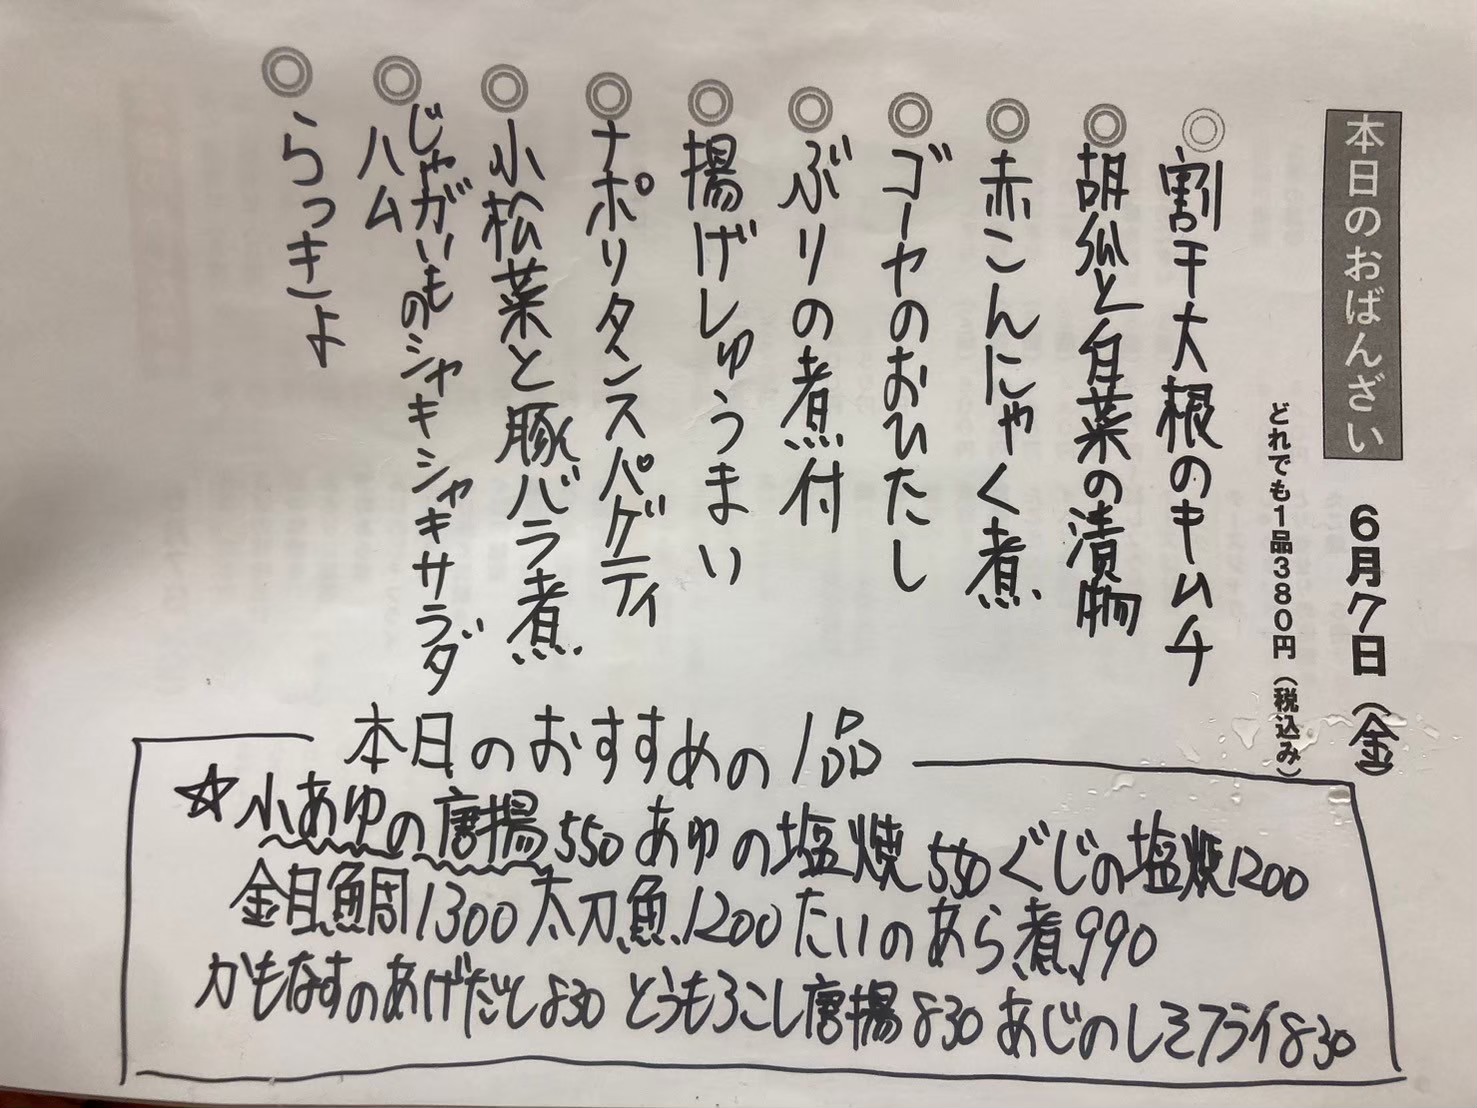 本日のおばんざい 6月7日(金)
どれでも1品380円(税込み)
◎割干大根のキムチ
◎胡瓜と白菜の漬物
◎赤こんにゃく煮
◎ゴーヤのおひたし
◎ぶりの煮付
◎揚げしゅうまい
◎ナポリタンスパゲティ
◎小松菜と豚バラ煮
◎じゃがいものシャキシャキサラダ
ハム
◎らっきょ
本日のおすすめの1品
☆小あゆの唐揚550 あゆの塩焼550 ぐじの塩焼1200
金目鯛1300 太刀魚1200 たいのあら煮990
かもなすのあげだし830 とうもろこし唐揚830 あじのしそフライ830